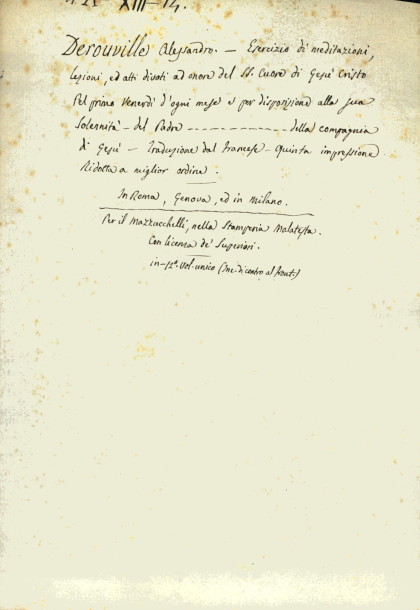 XIII-14.
Derouville Alessandro. — Esercizio di meditazioni,
lezioni, ed atti divoti ad onore del SS. Cuore di Gesù Cristo
Pel primo Venerdì d'ogni mese e per disposizione alla sua
Solennità - del Padre - - - - - - - - - - della compagnia
di Gesù — Traduzione dal francese - Quinta impressione
Ridotta a miglior ordine.
In Roma, Genova, ed in Milano.
Per il Mazzucchelli, nella Stamperia Malatesta.
Con licenza de' Superiori.
in-12.° Vol. unico (Inc. di contro al front.)